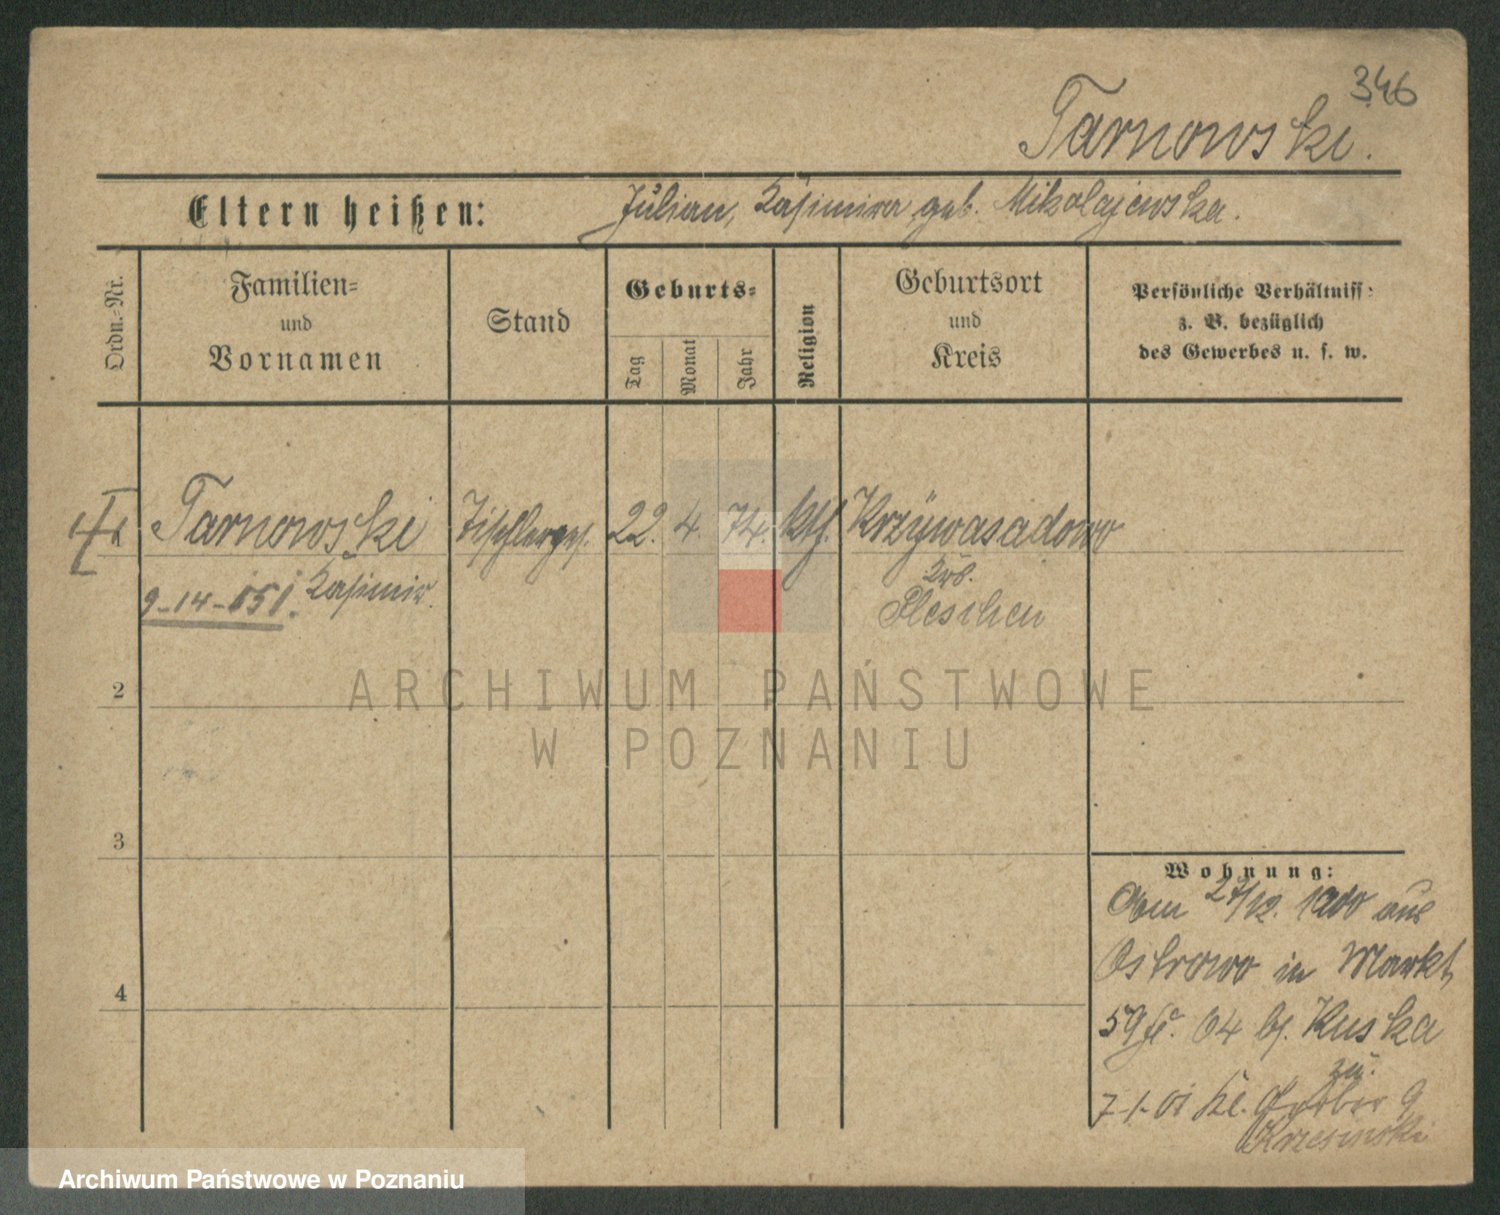 346
Tarnowski.
Eltern heißen: Julian, Kasimira geb. Mikolajewska.
Ordn.-Nr.
Familien-
und
Vornamen
Stand
Geburts-
Tag
Monat
Jahr
Religion
Geburtsort
und
Kreis
Persönliche Verhältniss-
z. B. bezüglich
des Gewerbes u. s. w.
Tarnowski Tischlerges. 22. 4. 74. kth. Krzywasadowo
Kasimir. Krs.
9-14-151. Pleschen
2
3
4
Wohnung:
Am 27/12. 1900 aus
Ostrowo in Markt
59 04 b. Kuska
zu.
7-1-01 Kl. Gerber 9
Krzesinski
ARCHIWUM PAŃSTWOWE
W POZNANIU
Archiwum Państwowe w Poznaniu